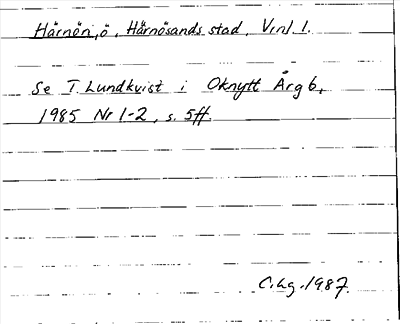 Härnön, ö, Härnösands stad, Vrnl.
Se T. Lundkvist i Oknytt Årg 6,
1985 Nr 1-2, s. 5ff.
C.Lg. 1987.